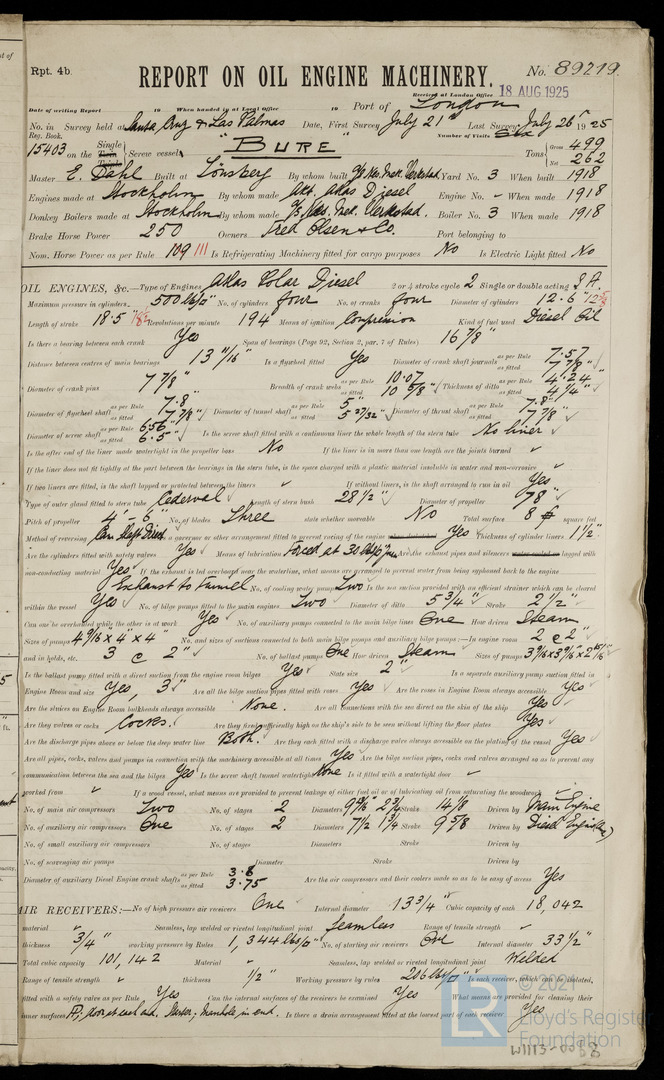 Rpt. 4b.
REPORT ON OIL ENGINE MACHINERY.
No. 89219.
Received at London Office 18 AUG 1925
Date of writing Report 19 When handed in at Local Office 19 Port of London
No. in Survey held at Santa Cruz & Las Palmas Date, First Survey July 21st Last Survey July 26th 1925
Reg. Book. Number of Visits Six
15403 on the Single Twin Triple Screw vessel "BURE" Tons Gross 499 Net 262
Master E. Dahl Built at Tönsberg By whom built Yard No. 3 When built 1918
Engines made at Stockholm By whom made Akt. Atlas Diesel Engine No. - When made 1918
Donkey Boilers made at Stockholm By whom made Boiler No. 3 When made 1918
Brake Horse Power 250 Owners Fred Olsen & Co. Port belonging to
Nom. Horse Power as per Rule 109 111 Is Refrigerating Machinery fitted for cargo purposes No Is Electric Light fitted No
OIL ENGINES, &c.—Type of Engines Atlas Polar Diesel 2 or 4 stroke cycle 2 Single or double acting S.A.
Maximum pressure in cylinders 500 lbs/□" No. of cylinders four No. of cranks four Diameter of cylinders 12.6"
Length of stroke 18.5" Revolutions per minute 194 Means of ignition Compression Kind of fuel used Diesel Oil
Is there a bearing between each crank Yes Span of bearings (Page 92, Section 2, par. 7 of Rules) 16 7/8"
Distance between centres of main bearings 13 11/16" Is a flywheel fitted Yes Diameter of crank shaft journals as per Rule 7.57 as fitted 7 7/8"
Diameter of crank pins 7 7/8" Breadth of crank webs as per Rule 10.07 as fitted 10 5/8" Thickness of ditto as per Rule 4.24 as fitted 4 1/4"
Diameter of flywheel shaft as per Rule 7.8" as fitted 7 7/8" Diameter of tunnel shaft as per Rule 5" as fitted 5 27/32" Diameter of thrust shaft as per Rule 7.8" as fitted 7 7/8"
Diameter of screw shaft as per Rule 6.56 as fitted 6.5" Is the screw shaft fitted with a continuous liner the whole length of the stern tube No liner
Is the after end of the liner made watertight in the propeller boss No If the liner is in more than one length are the joints burned "
If the liner does not fit tightly at the part between the bearings in the stern tube, is the space charged with a plastic material insoluble in water and non-corrosive "
If two liners are fitted, is the shaft lapped or protected between the liners " If without liners, is the shaft arranged to run in oil Yes
Type of outer gland fitted to stern tube Cederval Length of stern bush 28 1/2" Diameter of propeller 78"
Pitch of propeller 4'-6" No. of blades Three state whether moveable No Total surface 8 square feet
Method of reversing Cam Shaft Direct Is a governor or other arrangement fitted to prevent racing of the engine Yes Thickness of cylinder liners 1 1/2"
Are the cylinders fitted with safety valves Yes Means of lubrication Forced at 30 lbs/□" Are the exhaust pipes and silencers lagged with
non-conducting material Yes If the exhaust is led overboard near the waterline, what means are arranged to prevent water from being syphoned back to the engine
Exhaust to Funnel No. of cooling water pumps Two Is the sea suction provided with an efficient strainer which can be cleared
within the vessel Yes No. of bilge pumps fitted to the main engines Two Diameter of ditto 5 3/4" Stroke 2 1/2"
Can one be overhauled while the other is at work Yes No. of auxiliary pumps connected to the main bilge lines One How driven Steam
Sizes of pumps 4 9/16" x 4" x 4" No. and sizes of suctions connected to both main bilge pumps and auxiliary bilge pumps:—In engine room 2 @ 2"
and in holds, etc. 3 @ 2" No. of ballast pumps One How driven Steam Sizes of pumps 3 9/16 x 3 9/16" x 2 15/16"
Is the ballast pump fitted with a direct suction from the engine room bilges Yes State size 2" Is a separate auxiliary pump suction fitted in
Engine Room and size Yes 3" Are all the bilge suction pipes fitted with roses Yes Are the roses in Engine Room always accessible Yes
Are the sluices on Engine Room bulkheads always accessible None. Are all connections with the sea direct on the skin of the ship Yes
Are they valves or cocks Cocks. Are they fixed sufficiently high on the ship's side to be seen without lifting the floor plates Yes
Are the discharge pipes above or below the deep water line Both. Are they each fitted with a discharge valve always accessible on the plating of the vessel Yes
Are all pipes, cocks, valves and pumps in connection with the machinery accessible at all times Yes Are the bilge suction pipes, cocks and valves arranged so as to prevent any
communication between the sea and the bilges Yes Is the screw shaft tunnel watertight None Is it fitted with a watertight door "
worked from " If a wood vessel, what means are provided to prevent leakage of either fuel oil or of lubricating oil from saturating the woodwork
No. of main air compressors Two No. of stages 2 Diameters 9 9/16" 2 3/4 Stroke 14 1/8 Driven by Main Engine
No. of auxiliary air compressors One No. of stages 2 Diameters 7 1/2 1 3/4 Stroke 9 5/8 Driven by Diesel Engine
No. of small auxiliary air compressors No. of stages Diameters Stroke Driven by
No. of scavenging air pumps Diameter Stroke Driven by
Diameter of auxiliary Diesel Engine crank shafts as per Rule 3.6 as fitted 3.75 Are the air compressors and their coolers made so as to be easy of access Yes
AIR RECEIVERS:—No. of high pressure air receivers One Internal diameter 13 3/4" Cubic capacity of each 18,042
material " Seamless, lap welded or riveted longitudinal joint Seamless Range of tensile strength "
thickness 3/4" working pressure by Rules 1,344 lbs/□" No. of starting air receivers One Internal diameter 33 1/2"
Total cubic capacity 101,142 Material " Seamless, lap welded or riveted longitudinal joint Welded
Range of tensile strength " thickness 1/2" Working pressure by rules 206 lbs/□" Is each receiver, which can be isolated,
fitted with a safety valve as per Rule Yes Can the internal surfaces of the receivers be examined Yes What means are provided for cleaning their
inner surfaces door at each end. manhole in end. Is there a drain arrangement fitted at the lowest part of each receiver Yes
© 2021
LR Lloyd's Register Foundation
W1113-0058